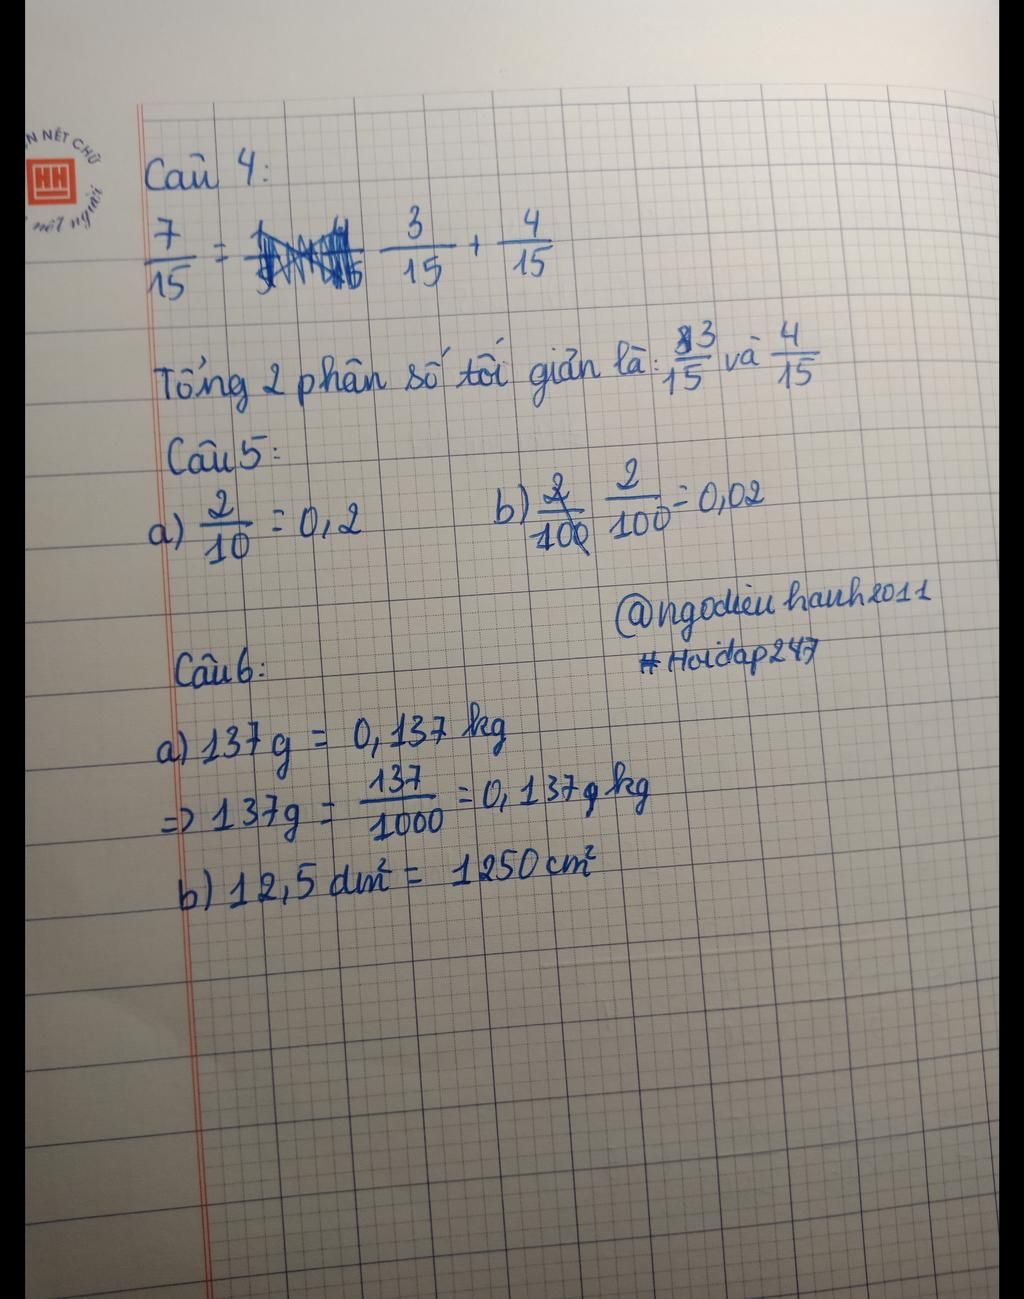 N NẾT CHỮ
HH
nết người
Caũ 4:
7/15 = 3/15 + 4/15
Tổng 2 phân số tối giản là: 3/15 và 4/15
Câu 5:
a) 2/10 = 0,2 b) 2/100 2/100 = 0,02
@ngodieuhanh2011
#Hoidap247
Câu 6:
a) 137g = 0,137 kg
=> 137g = 137/1000 = 0,137g kg
b) 12,5 dm² = 1250 cm²